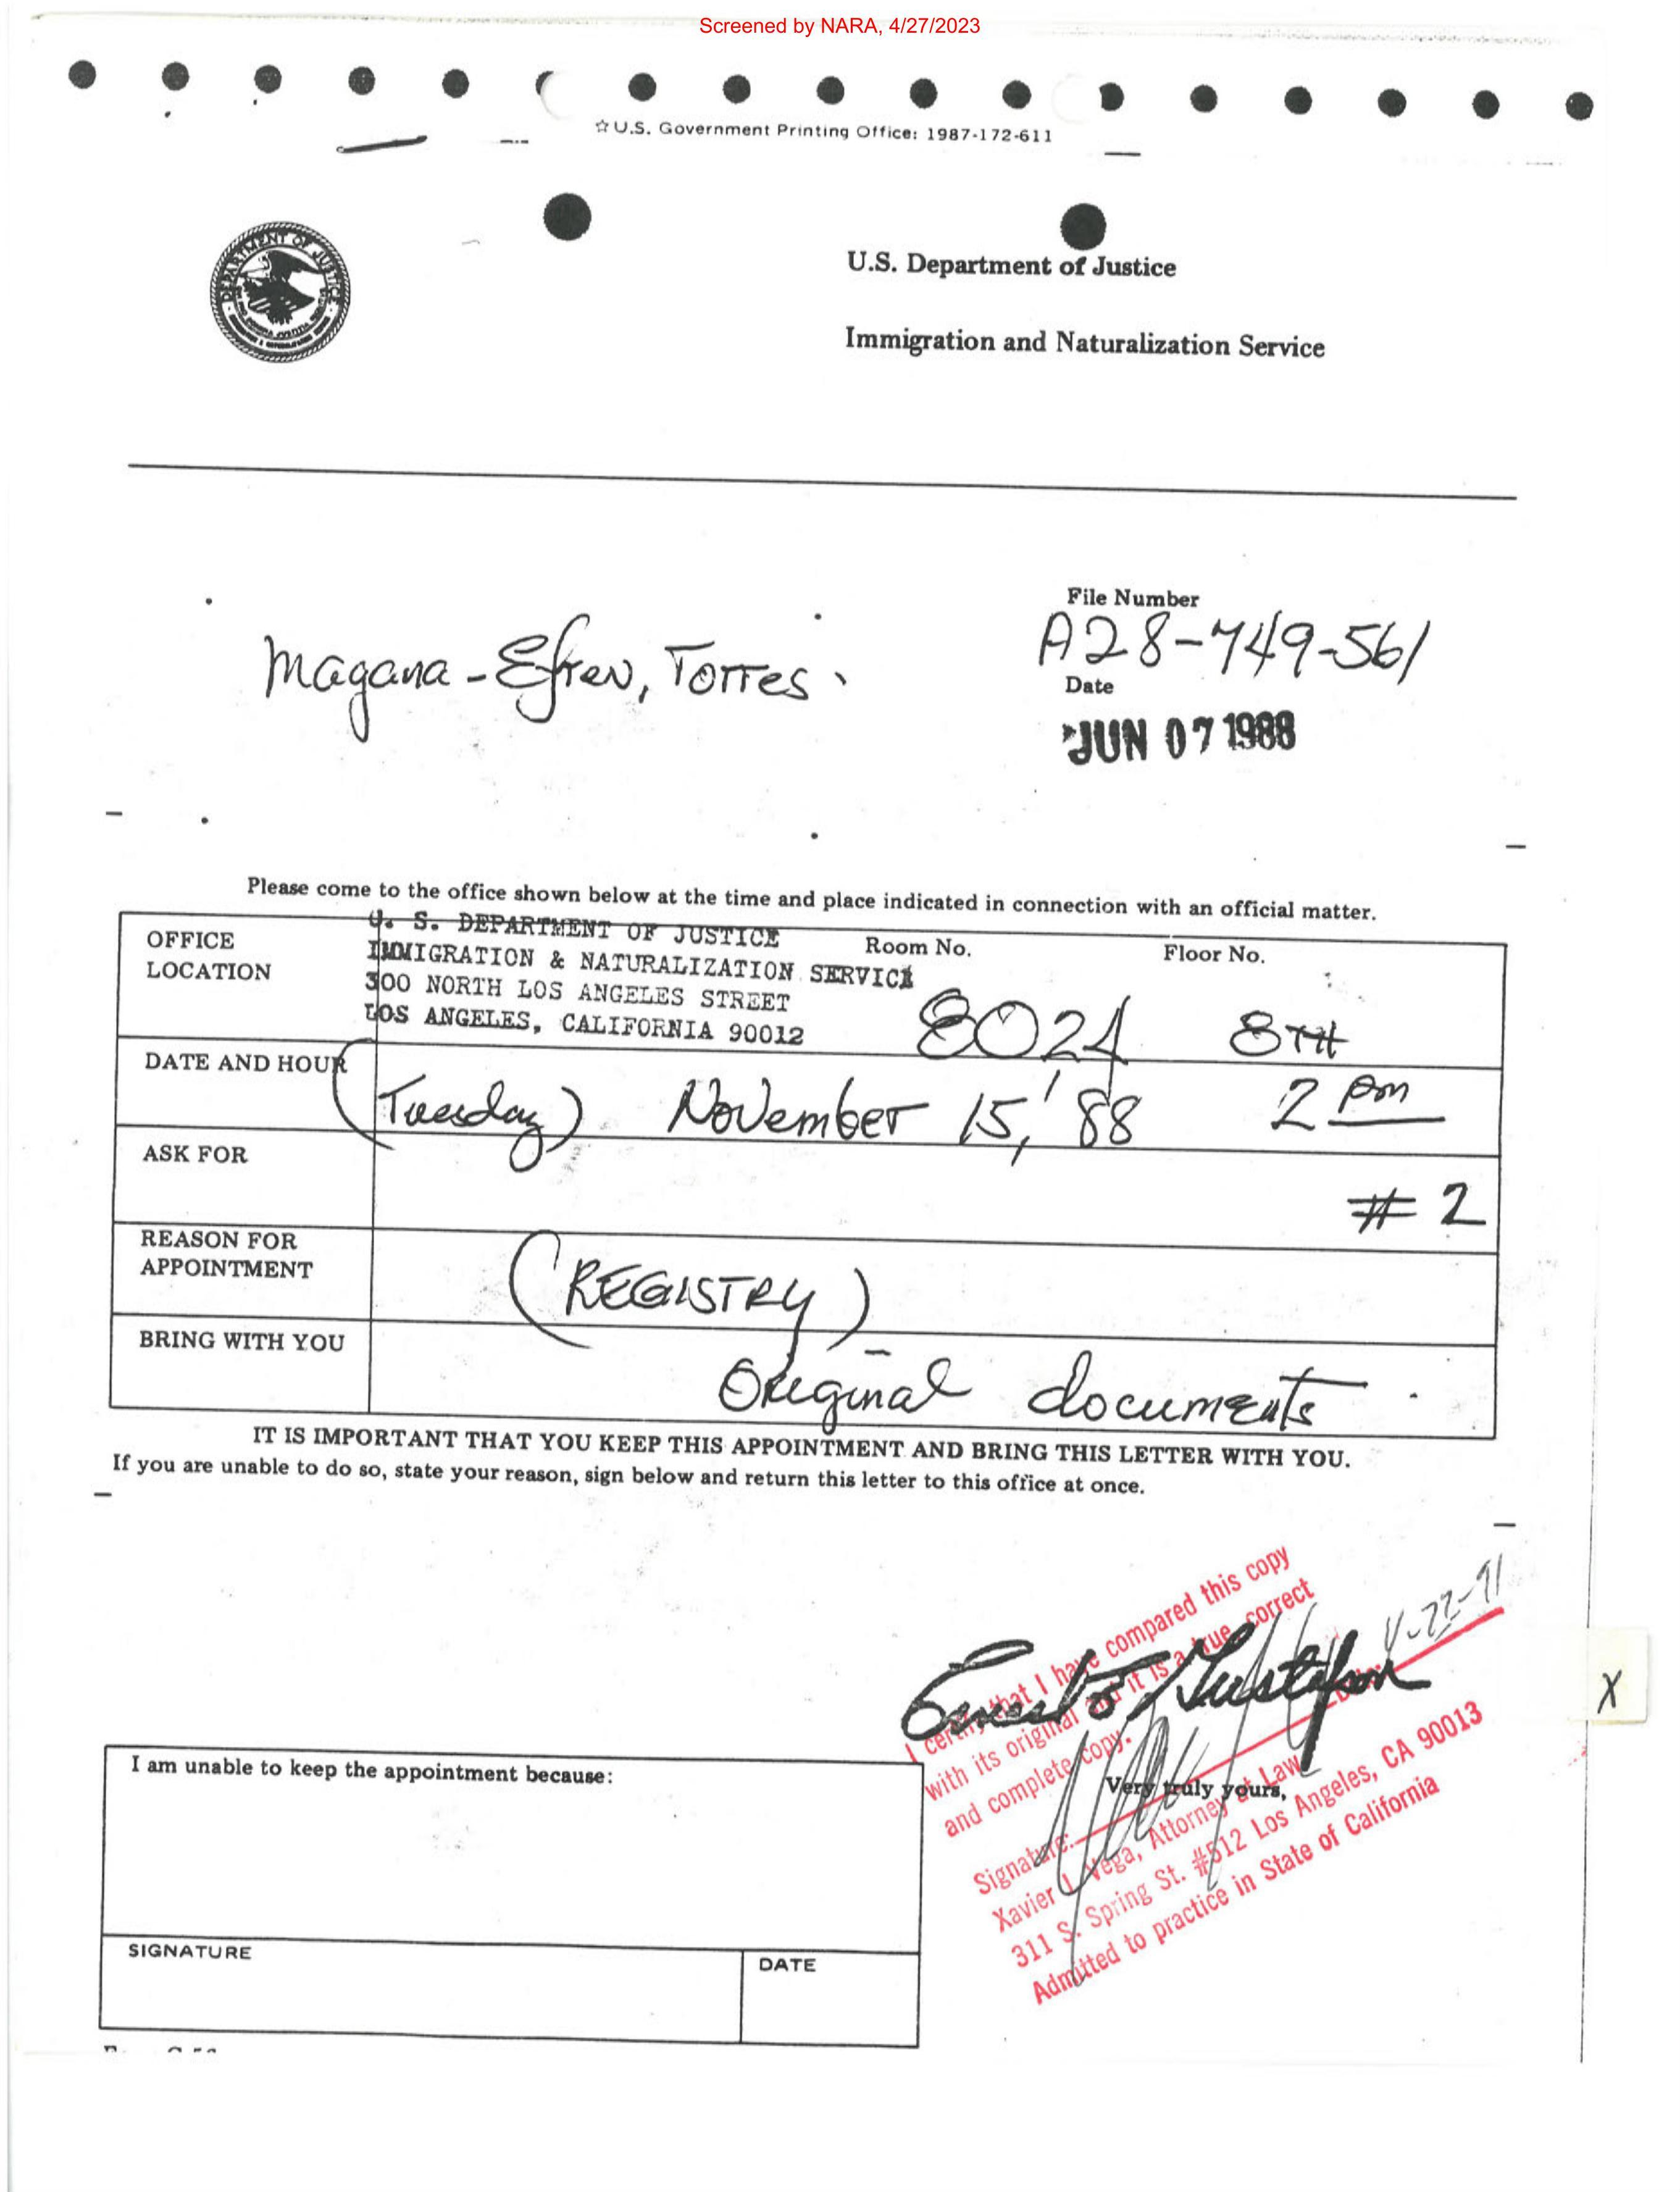 Screened by NARA, 4/27/2023
☆ U.S. Government Printing Office: 1987-172-611
DEPARTMENT OF JUSTICE
U.S. Department of Justice
Immigration and Naturalization Service
File Number
A28-749-561
Magana-Efren, Torres.
Date
JUN 07 1988
Please come to the office shown below at the time and place indicated in connection with an official matter.
OFFICE LOCATION
U. S. DEPARTMENT OF JUSTICE
IMMIGRATION & NATURALIZATION SERVICE
300 NORTH LOS ANGELES STREET
LOS ANGELES, CALIFORNIA 90012
Room No.
8024
Floor No.
8TH
DATE AND HOUR
(Tuesday) November 15, '88 2 pm
ASK FOR
# 2
REASON FOR APPOINTMENT
(REGISTRY)
BRING WITH YOU
Original documents.
IT IS IMPORTANT THAT YOU KEEP THIS APPOINTMENT AND BRING THIS LETTER WITH YOU.
If you are unable to do so, state your reason, sign below and return this letter to this office at once.
I certify that I have compared this copy
with its original and it is a true, correct
and complete copy.
4-22-91
X
Very truly yours,
Signature:
Xavier Vega, Attorney at Law
311 S. Spring St. #512 Los Angeles, CA 90013
Admitted to practice in State of California
I am unable to keep the appointment because:
SIGNATURE
DATE